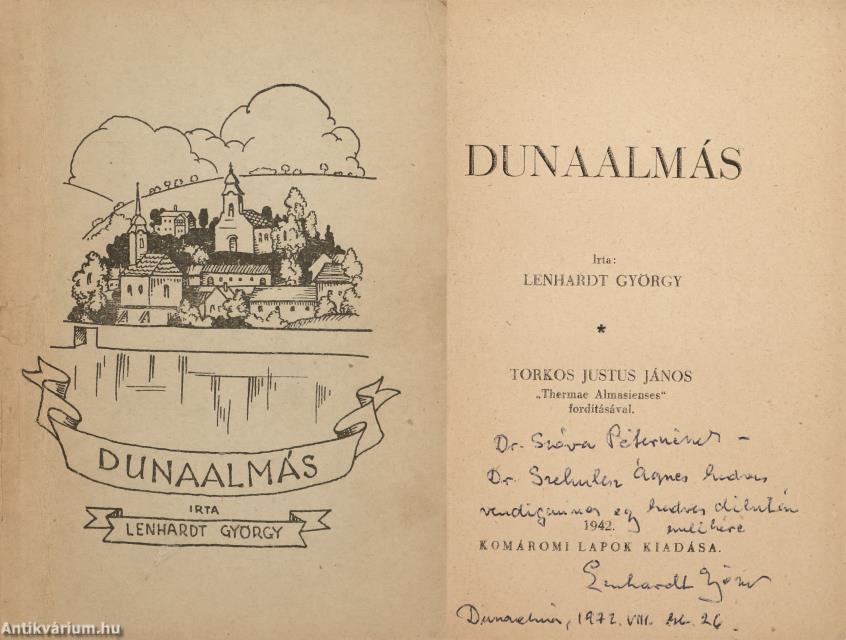 DUNAALMÁS
IRTA
LENHARDT GYÖRGY
Antikvárium.hu
DUNAALMÁS
Irta:
LENHARDT GYÖRGY
*
TORKOS JUSTUS JÁNOS
„Thermae Almasienses"
fordításával.
Dr. Szóva Péternének –
Dr. Ágnes kedves
egy kedves délután
emlékére
1942.
KOMÁROMI LAPOK KIADÁSA.
Lenhardt György
1972. VIII. 26.